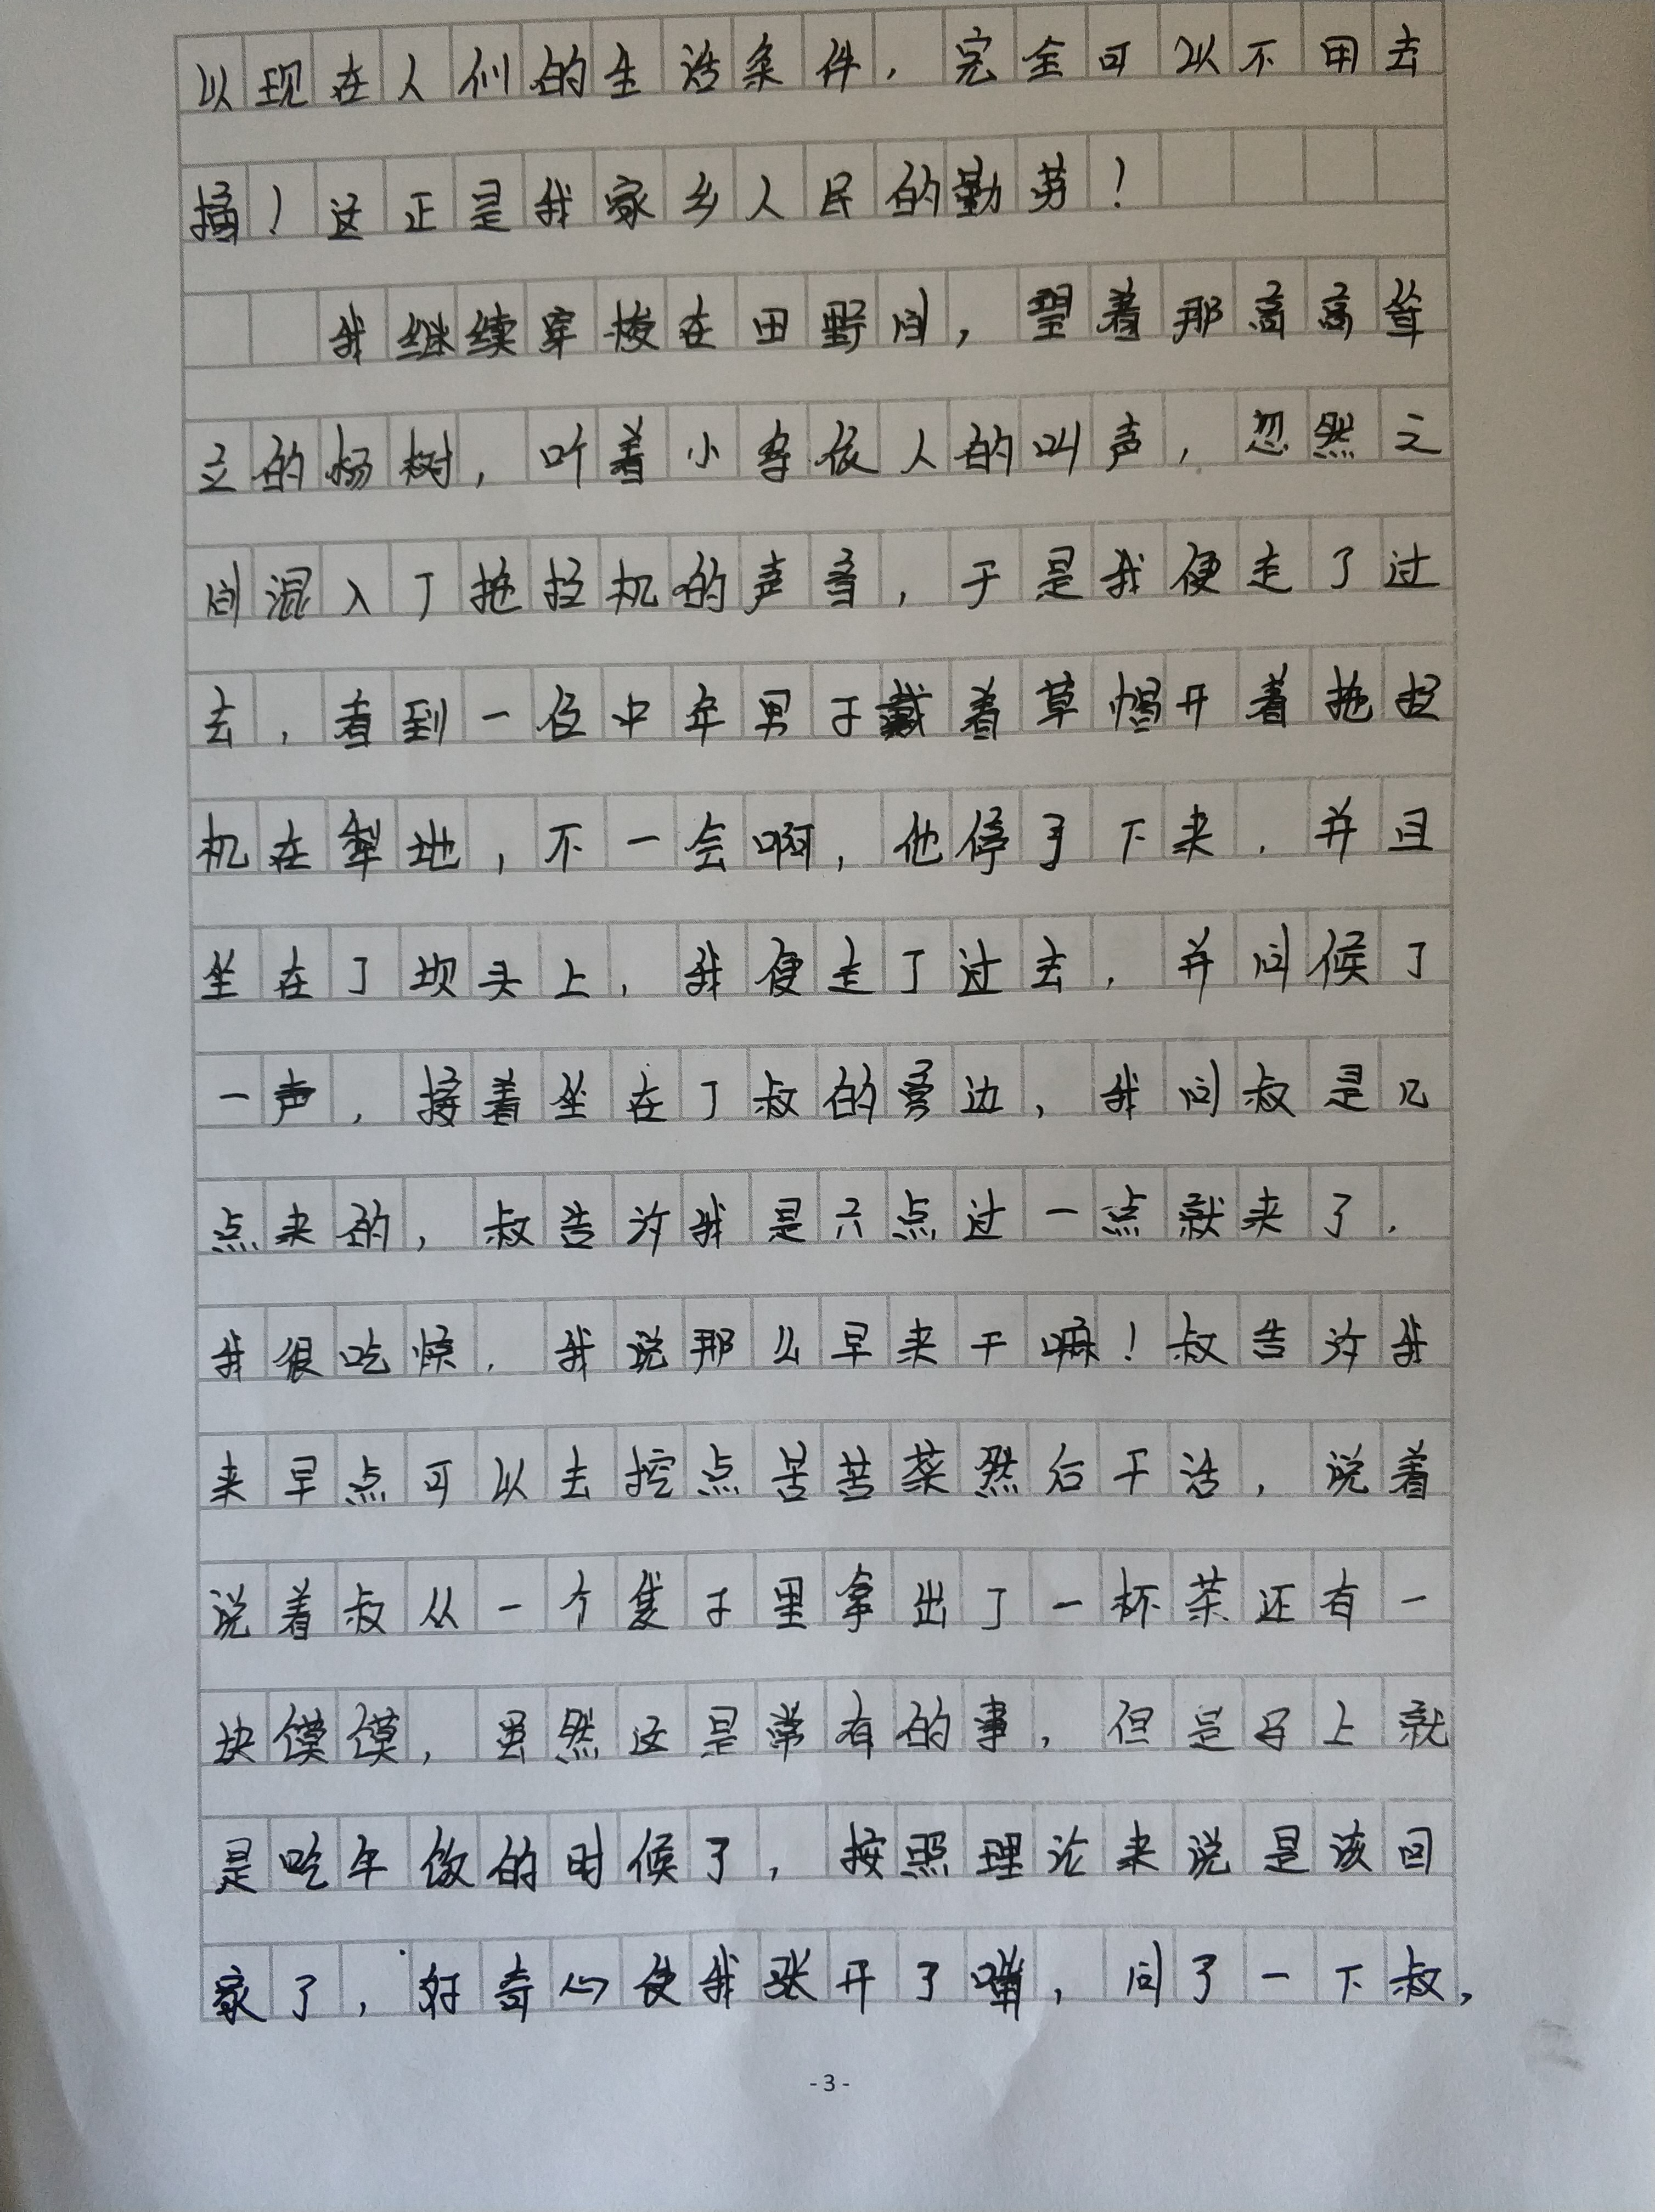 以现在人们的生活条件，完全可以不用去
摘！这正是我家乡人民的勤劳！
我继续穿梭在田野间，望着那高高耸
立的杨树，听着小鸟依人的叫声，忽然之
间混入了拖拉机的声音，于是我便走了过
去，看到一位中年男子戴着草帽开着拖拉
机在犁地，不一会啊，他停了下来，并且
坐在了坝头上，我便走了过去，并问候了
一声，接着坐在了叔的旁边，我问叔是几
点来的，叔告许我是六点过一点就来了，
我很吃惊，我说那么早来干嘛！叔告许我
来早点可以去挖点苦苦菜然后干活，说着
说着叔从一个篼子里拿出了一杯茶还有一
块馍馍，虽然这是常有的事，但是马上就
是吃午饭的时候了，按照理论来说是该回
家了，好奇心使我张开了嘴，问了一下叔，
-3-